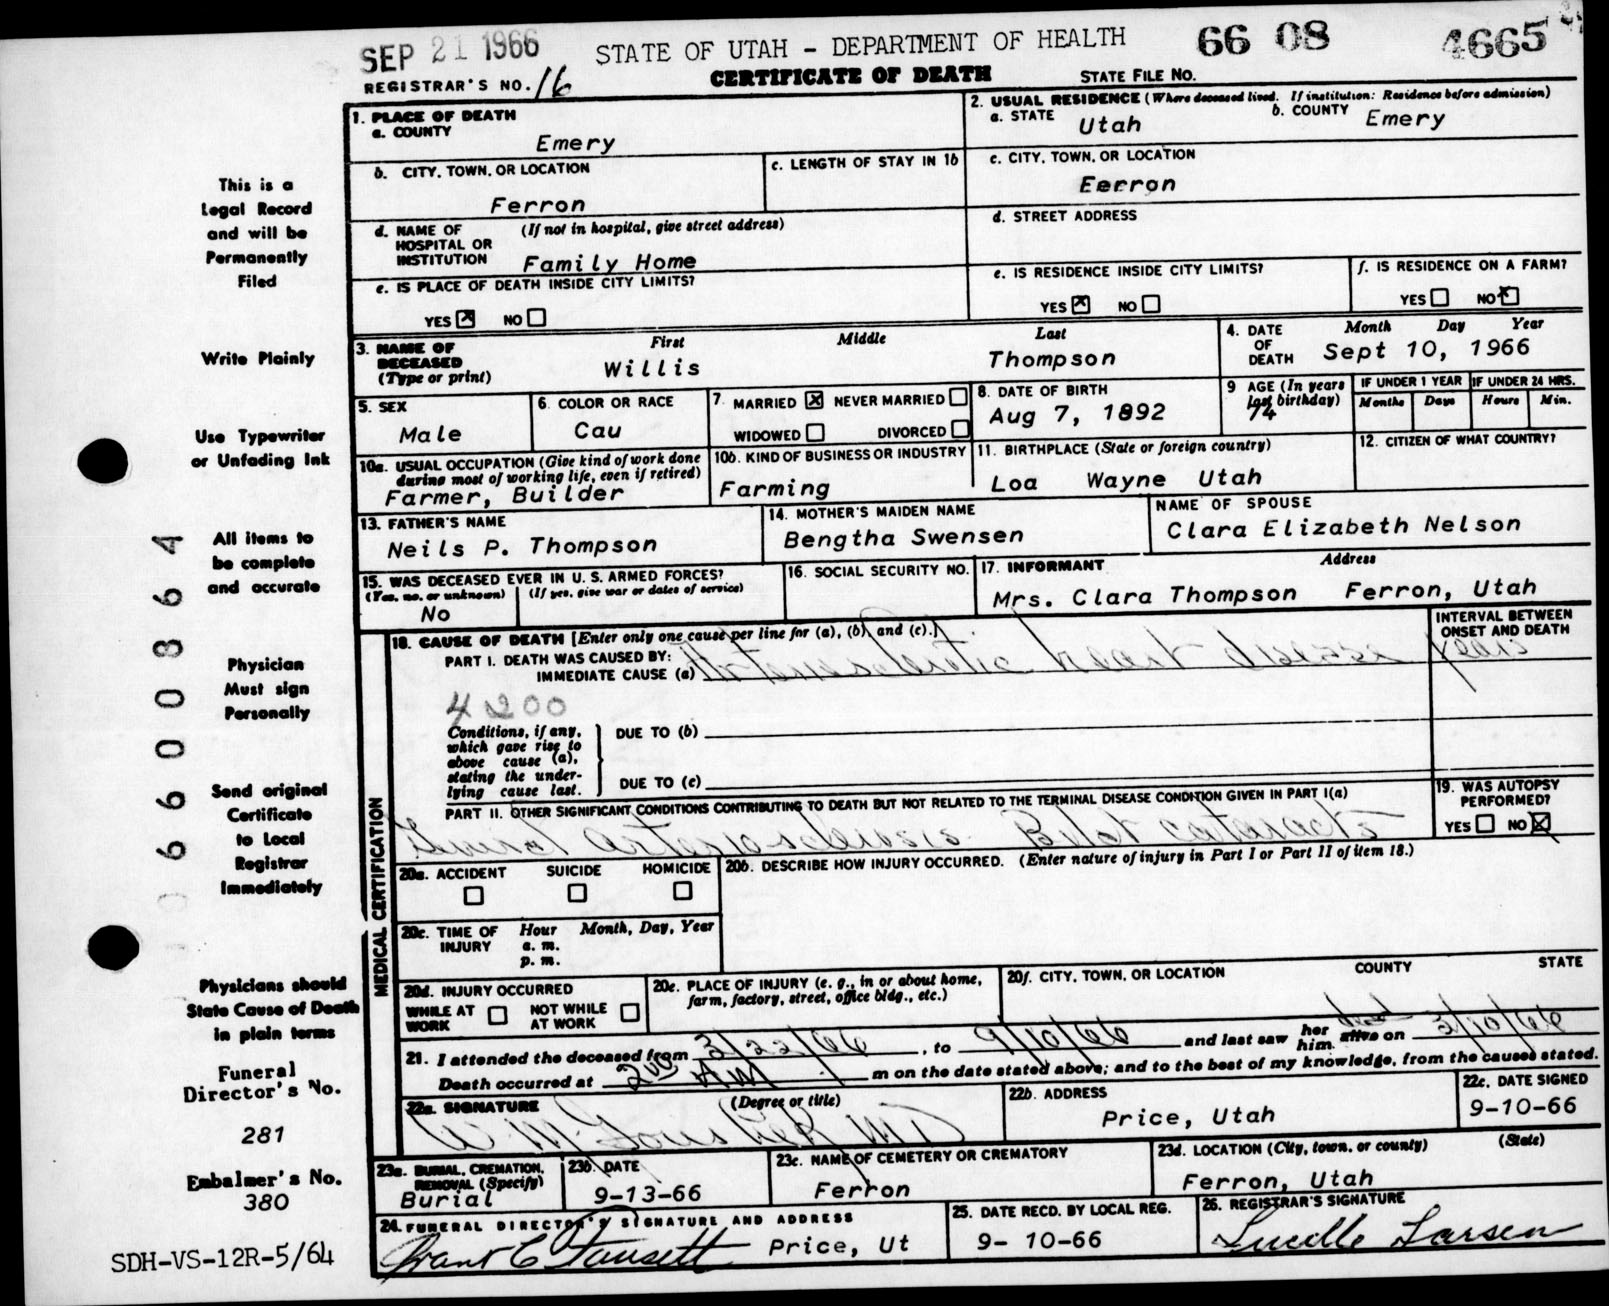 SEP 21 1966 STATE OF UTAH - DEPARTMENT OF HEALTH 66 08 4665
REGISTRAR'S NO. 16 CERTIFICATE OF DEATH STATE FILE NO.
1. PLACE OF DEATH
a. COUNTY
Emery
2. USUAL RESIDENCE (Where deceased lived. If institution: Residence before admission)
a. STATE Utah b. COUNTY Emery
b. CITY, TOWN, OR LOCATION
Ferron
c. LENGTH OF STAY IN 1b
c. CITY, TOWN, OR LOCATION
Eerron
d. NAME OF HOSPITAL OR INSTITUTION (If not in hospital, give street address)
Family Home
d. STREET ADDRESS
e. IS PLACE OF DEATH INSIDE CITY LIMITS?
YES ☒ NO ☐
e. IS RESIDENCE INSIDE CITY LIMITS?
YES ☒ NO ☐
f. IS RESIDENCE ON A FARM?
YES ☐ NO ☒
3. NAME OF DECEASED (Type or print)
First Middle Last
Willis Thompson
4. DATE OF DEATH Month Day Year
Sept 10, 1966
5. SEX
Male
6. COLOR OR RACE
Cau
7. MARRIED ☒ NEVER MARRIED ☐
WIDOWED ☐ DIVORCED ☐
8. DATE OF BIRTH
Aug 7, 1892
9 AGE (In years last birthday)
74
IF UNDER 1 YEAR IF UNDER 24 HRS.
Months Days Hours Min.
10a. USUAL OCCUPATION (Give kind of work done during most of working life, even if retired)
Farmer, Builder
10b. KIND OF BUSINESS OR INDUSTRY
Farming
11. BIRTHPLACE (State or foreign country)
Loa Wayne Utah
12. CITIZEN OF WHAT COUNTRY?
13. FATHER'S NAME
Neils P. Thompson
14. MOTHER'S MAIDEN NAME
Bengtha Swensen
NAME OF SPOUSE
Clara Elizabeth Nelson
15. WAS DECEASED EVER IN U. S. ARMED FORCES?
(Yes, no, or unknown) (If yes, give war or dates of service)
No
16. SOCIAL SECURITY NO.
17. INFORMANT Address
Mrs. Clara Thompson Ferron, Utah
MEDICAL CERTIFICATION
18. CAUSE OF DEATH [Enter only one cause per line for (a), (b), and (c).]
INTERVAL BETWEEN ONSET AND DEATH
PART I. DEATH WAS CAUSED BY:
IMMEDIATE CAUSE (a) Arteriosclerotic heart disease years
4200
Conditions, if any, which gave rise to above cause (a), stating the underlying cause last.
DUE TO (b)
DUE TO (c)
PART II. OTHER SIGNIFICANT CONDITIONS CONTRIBUTING TO DEATH BUT NOT RELATED TO THE TERMINAL DISEASE CONDITION GIVEN IN PART I(a)
General arteriosclerosis. Bilat cataracts
19. WAS AUTOPSY PERFORMED?
YES ☐ NO ☒
20a. ACCIDENT SUICIDE HOMICIDE
☐ ☐ ☐
20b. DESCRIBE HOW INJURY OCCURRED. (Enter nature of injury in Part I or Part II of item 18.)
20c. TIME OF INJURY Hour Month, Day, Year
a. m.
p. m.
20d. INJURY OCCURRED
WHILE AT WORK ☐ NOT WHILE AT WORK ☐
20e. PLACE OF INJURY (e. g., in or about home, farm, factory, street, office bldg., etc.)
20f. CITY, TOWN, OR LOCATION COUNTY STATE
21. I attended the deceased from 3/22/66, to 9/10/66 and last saw her him alive dead on 3/10/66
Death occurred at 2:00 AM m on the date stated above; and to the best of my knowledge, from the causes stated.
22a. SIGNATURE (Degree or title)
W. M. MD
22b. ADDRESS
Price, Utah
22c. DATE SIGNED
9-10-66
23a. BURIAL, CREMATION, REMOVAL (Specify)
Burial
23b. DATE
9-13-66
23c. NAME OF CEMETERY OR CREMATORY
Ferron
23d. LOCATION (City, town, or county) (State)
Ferron, Utah
24. FUNERAL DIRECTOR'S SIGNATURE AND ADDRESS
Grant C Fausett Price, Ut
25. DATE RECD. BY LOCAL REG.
9- 10-66
26. REGISTRAR'S SIGNATURE
Lucille Larsen
This is a
Legal Record
and will be
Permanently
Filed
Write Plainly
Use Typewriter
or Unfading Ink
All items to
be complete
and accurate
Physician
Must sign
Personally
Send original
Certificate
to Local
Registrar
Immediately
Physicians should
State Cause of Death
in plain terms
Funeral
Director's No.
281
Embalmer's No.
380
SDH-VS-12R-5/64